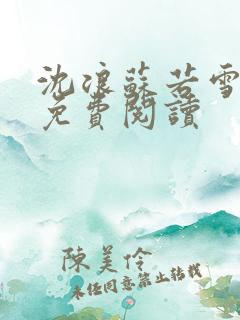 沈浪蘇若雪
免費閱讀
陳美伶
未经同意禁止转载